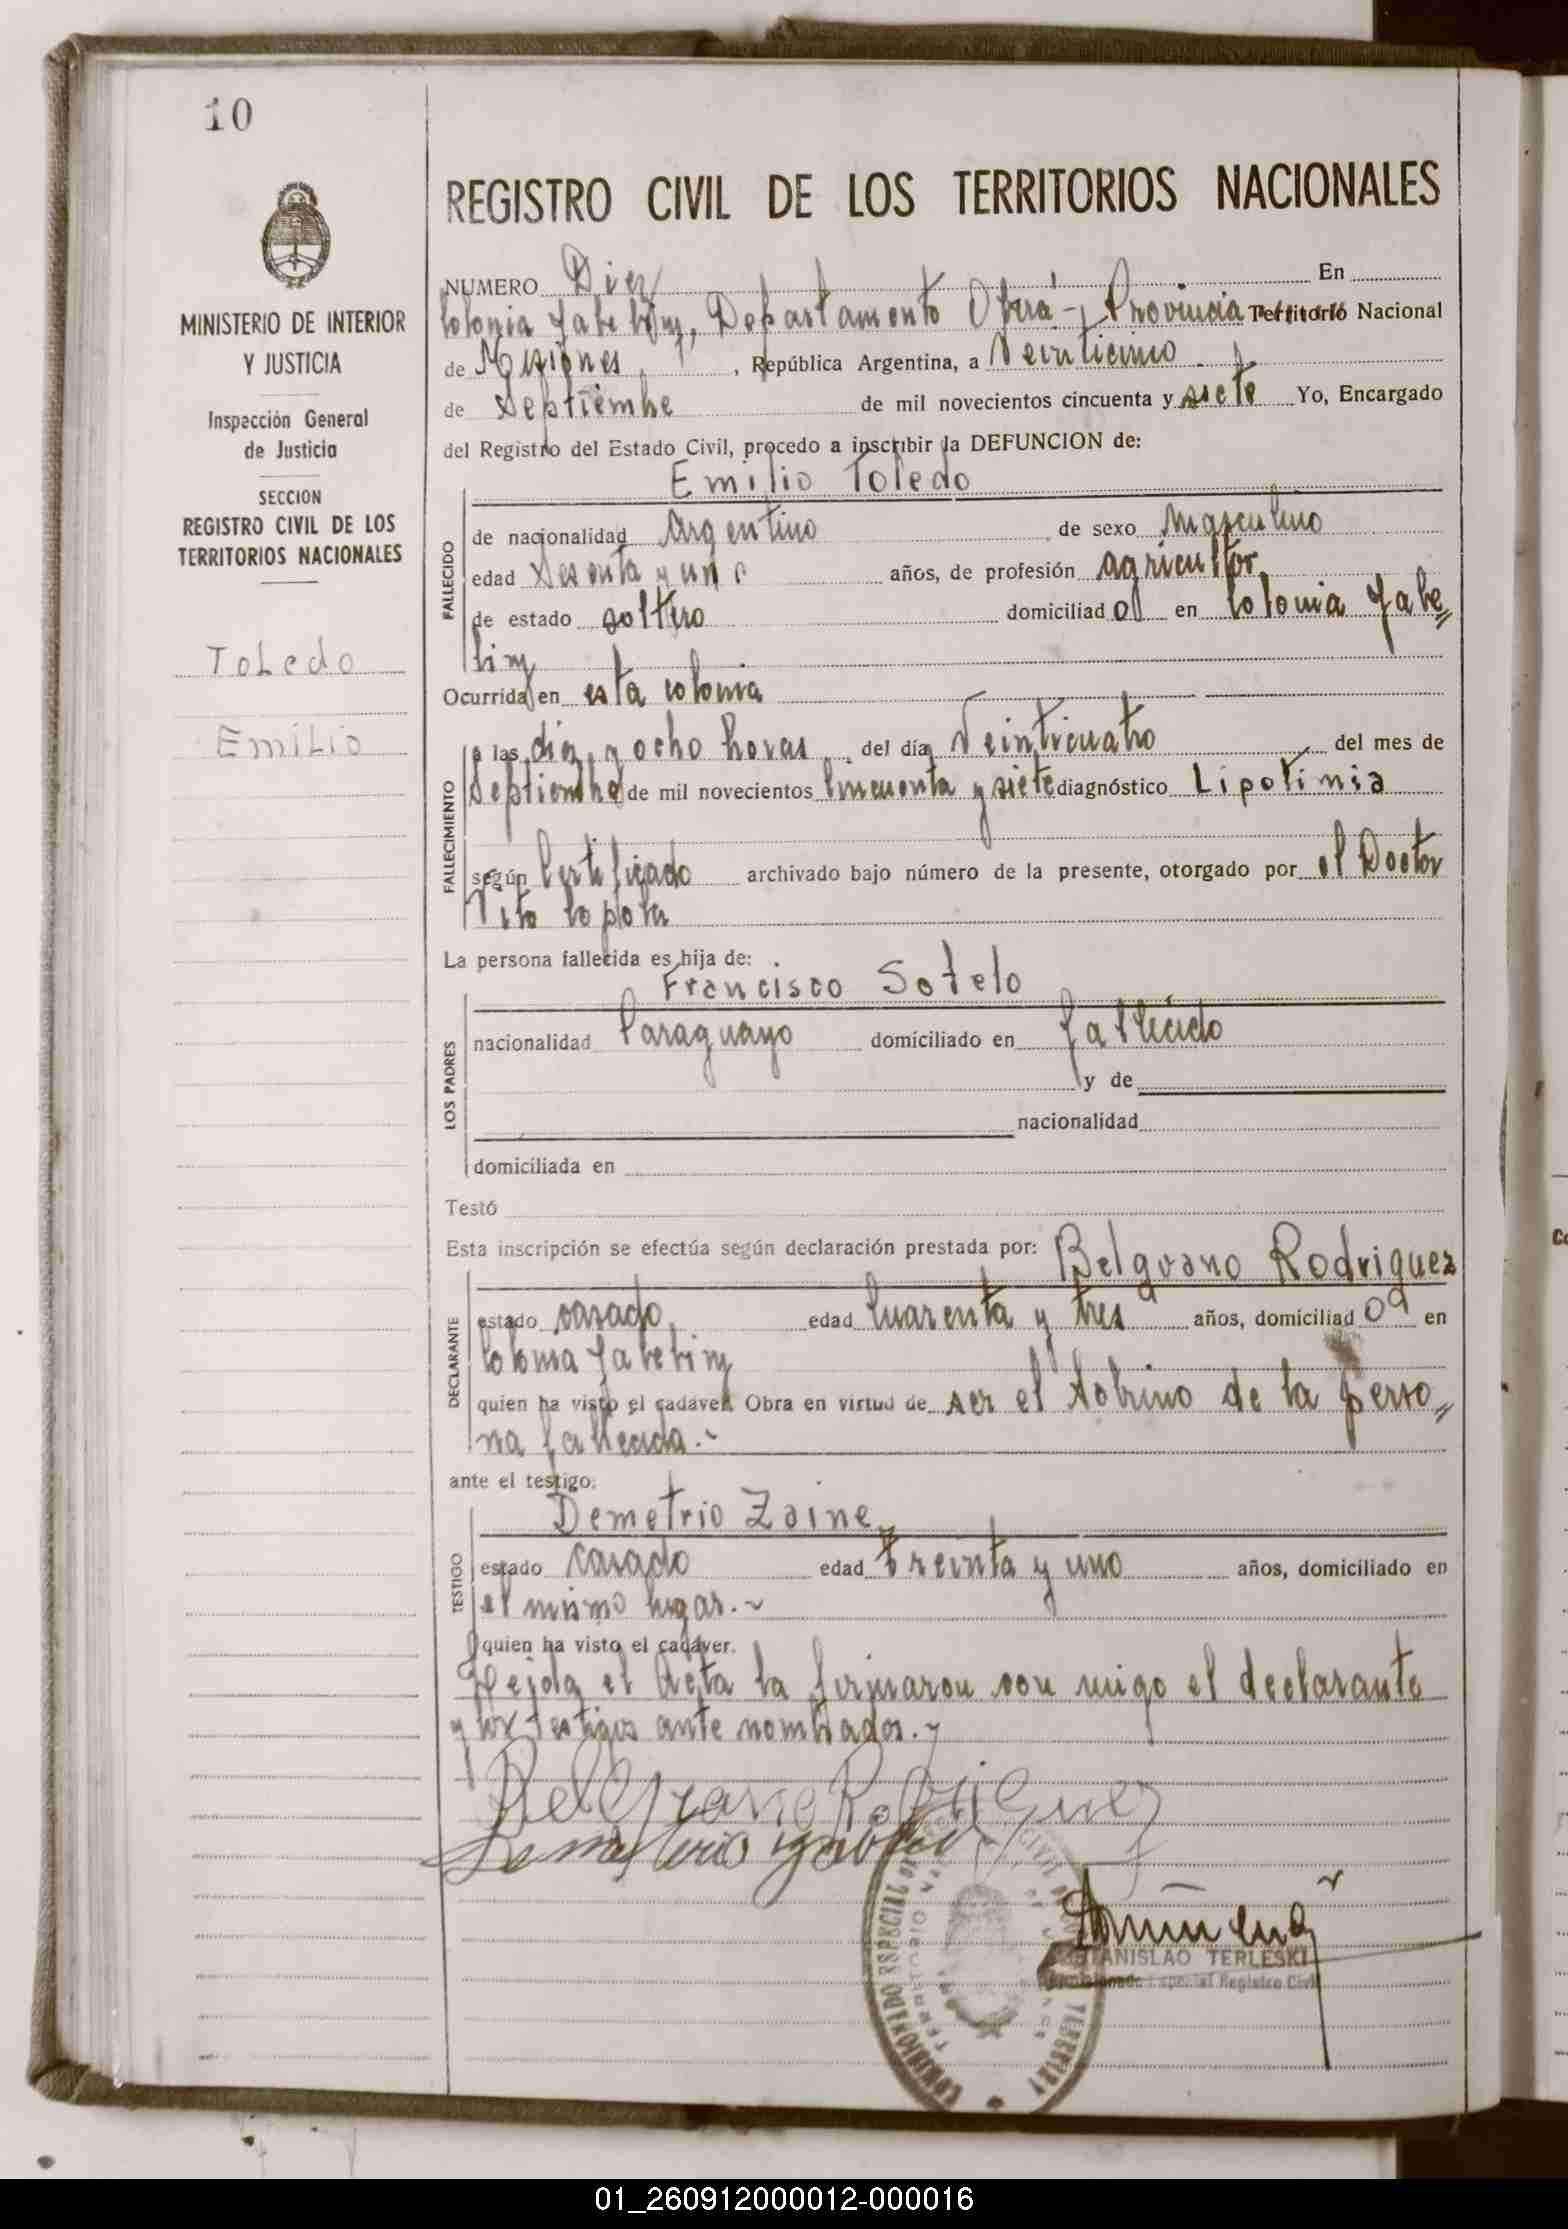 10
MINISTERIO DE INTERIOR
Y JUSTICIA
Inspección General
de Justicia
SECCION
REGISTRO CIVIL DE LOS
TERRITORIOS NACIONALES
Toledo
Emilio
REGISTRO CIVIL DE LOS TERRITORIOS NACIONALES
NUMERO Diez En
Colonia Yabebiry, Departamento Oberá - Provincia Territorio Nacional
de Misiones, República Argentina, a Veinticinco
de Septiembre de mil novecientos cincuenta y siete Yo, Encargado
del Registro del Estado Civil, procedo a inscribir la DEFUNCION de:
Emilio Toledo
FALLECIDO
de nacionalidad Argentino de sexo Masculino
edad Sesenta y uno años, de profesión agricultor
de estado soltero domiciliado en Colonia Yabe=
biry
Ocurrida en esta colonia
FALLECIMIENTO
a las diez y ocho horas, del día Veinticuatro del mes de
Septiembre de mil novecientos Cincuenta y siete diagnóstico Lipotimia
según Certificado archivado bajo número de la presente, otorgado por el Doctor
Tito
La persona fallecida es hija de:
Francisco Sotelo
LOS PADRES
nacionalidad Paraguayo domiciliado en fallecido
y de
nacionalidad
domiciliada en
Testó
Esta inscripción se efectúa según declaración prestada por: Belgrano Rodriguez
DECLARANTE
estado casado edad Cuarenta y tres años, domiciliado en
Colonia Yabebiry
quien ha visto el cadáver. Obra en virtud de ser el sobrino de la perso=
na fallecida.-
ante el testigo:
Demetrio Zaine
TESTIGO
estado casado edad treinta y uno años, domiciliado en
el mismo lugar.-
quien ha visto el cadáver.
Leida el Acta la firmaron con migo el declarante
y los testigos ante nombrados.-
Belgrano Rodriguez
COMISIONADO ESPECIAL
ESTANISLAO TERLESKI
Comisionado Especial Registro Civil
01_260912000012-000016